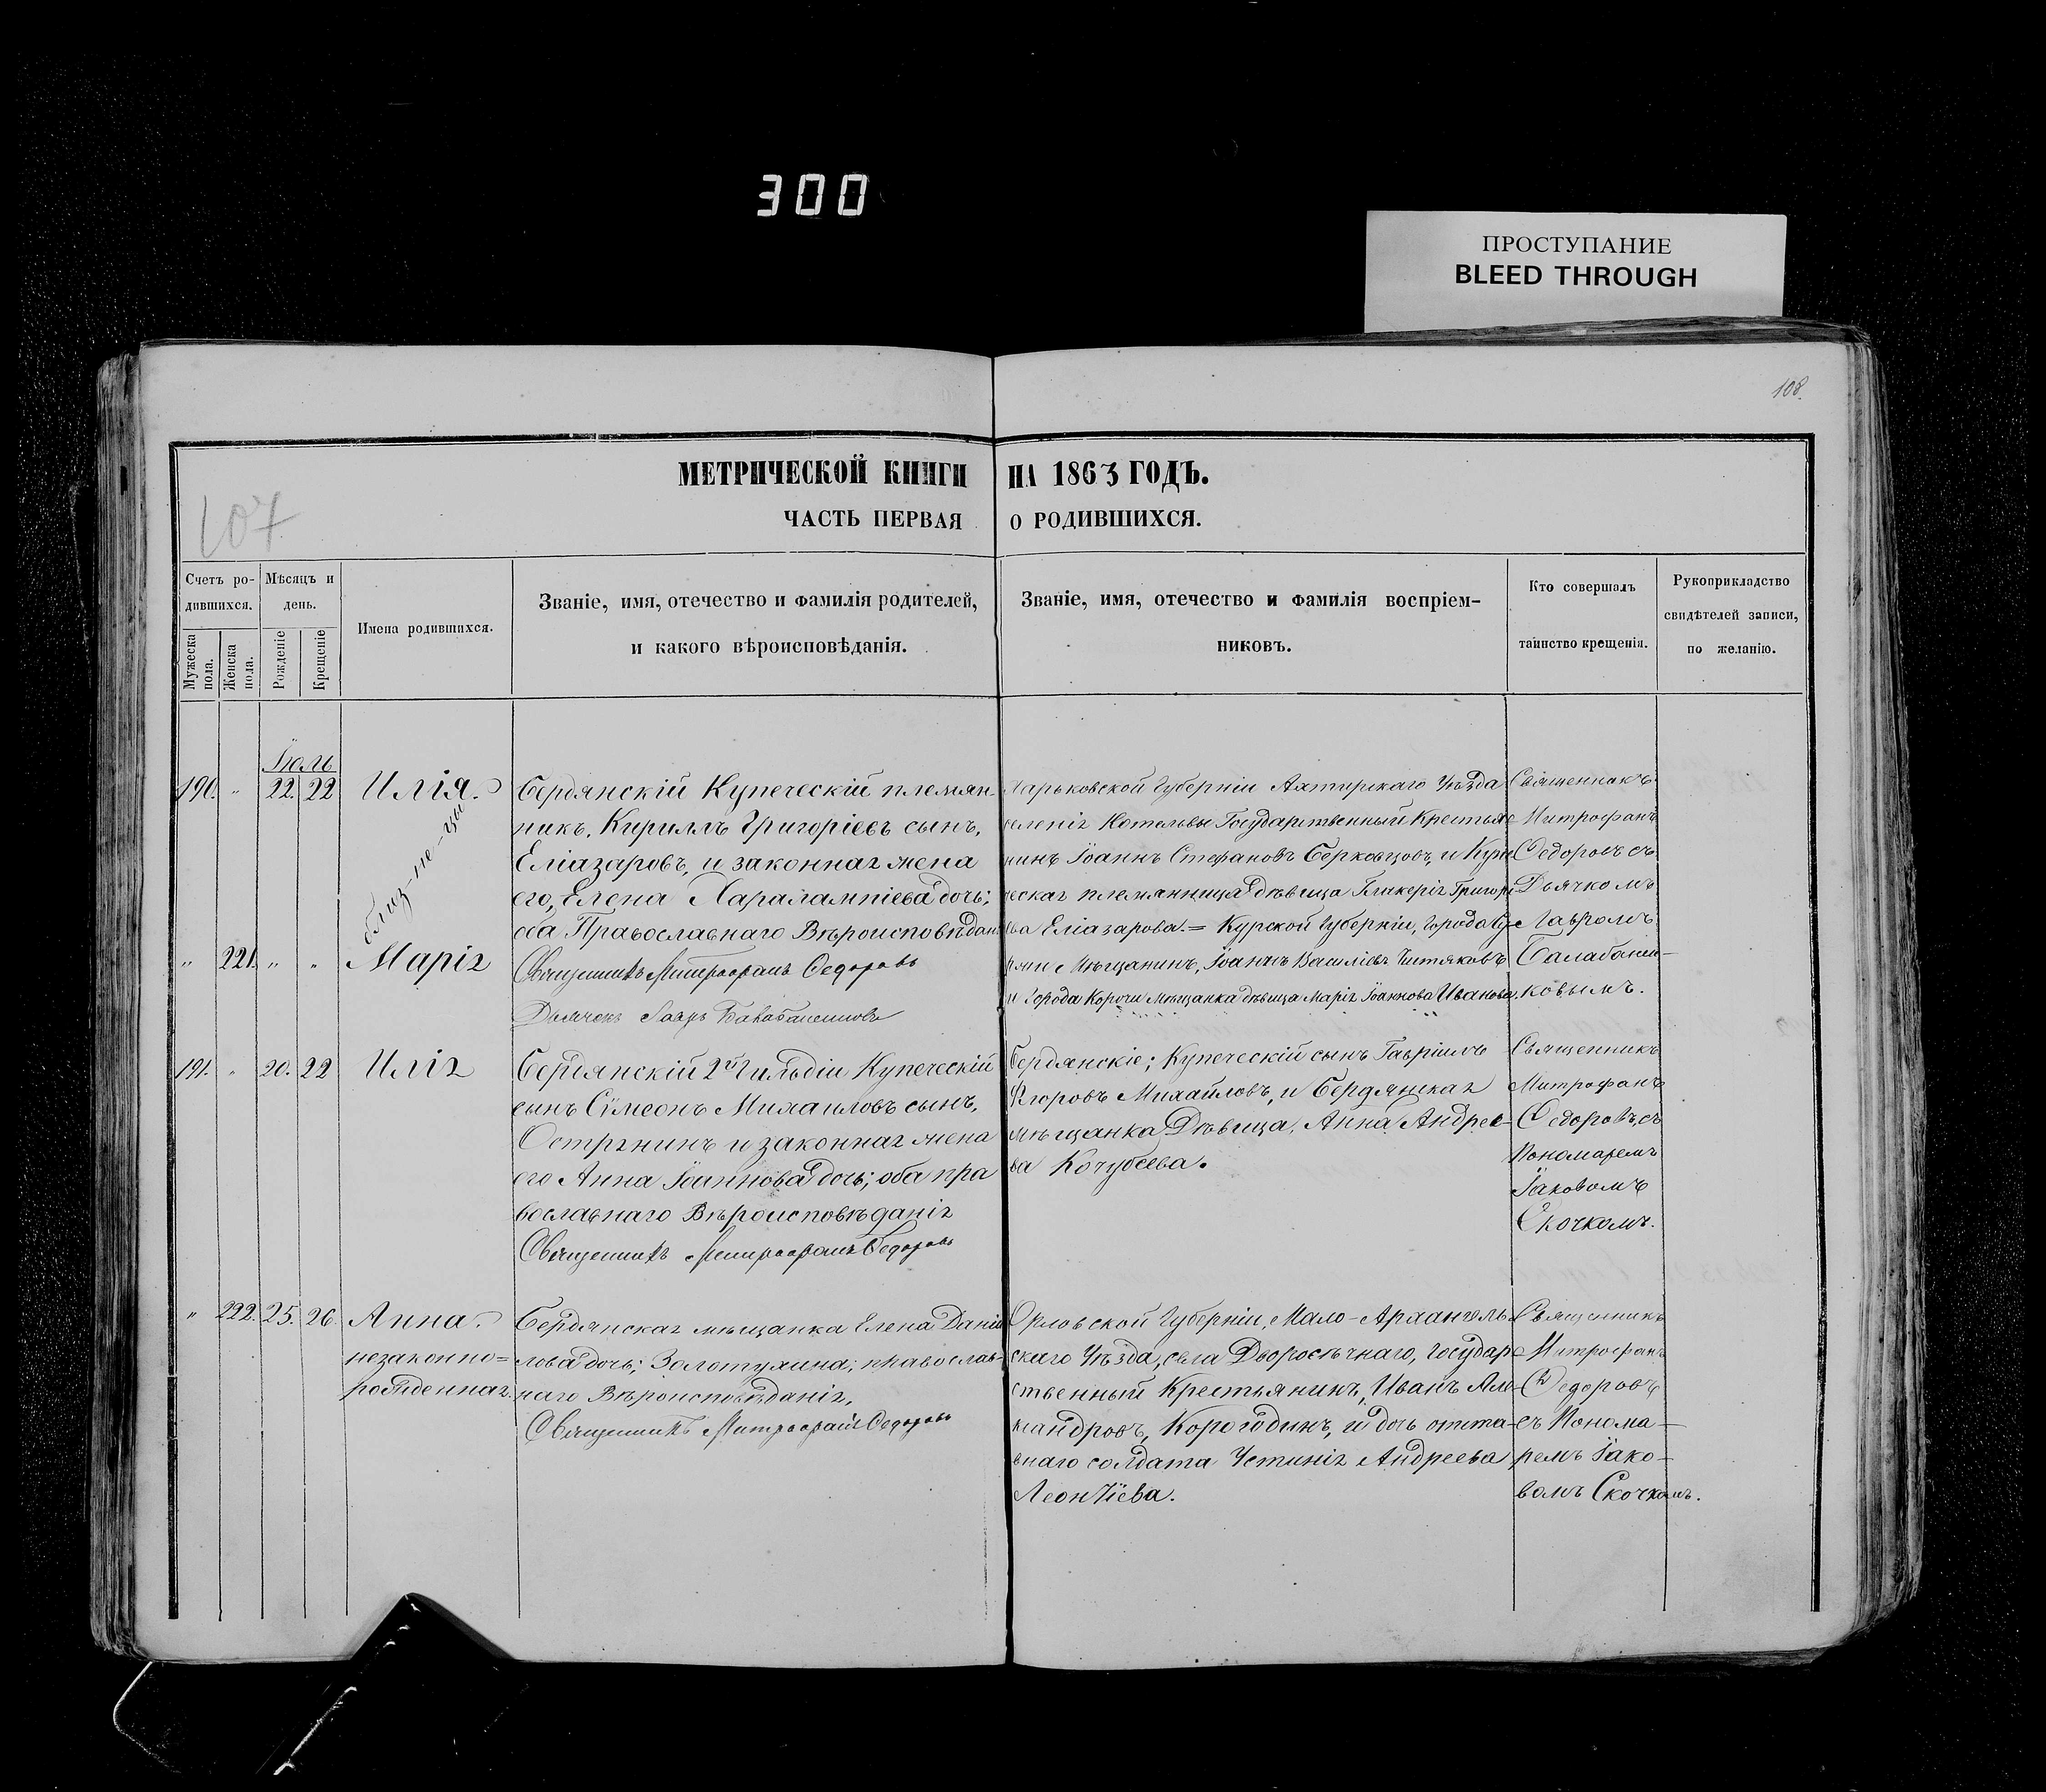 300
ПРОСТУПАНИЕ
BLEED THROUGH
108.
МЕТРИЧЕСКОЙ КНИГИ НА 1863 ГОДЪ.
107
ЧАСТЬ ПЕРВАЯ О РОДИВШИХСЯ.
Счетъ ро-
дившихся.
Мужеска пола.
Женска пола.
Мѣсяцъ и
день.
Рожденіе
Крещеніе
Имена родившихся.
Званіе, имя, отечество и фамилія родителей,
и какого вѣроисповѣданія.
Званіе, имя, отечество и фамилія воспріем-
никовъ.
Кто совершалъ
таинство крещенія.
Рукоприкладство
свидѣтелей записи,
по желанію.
Іюль
190. " 22. 22 Илія.
близ-не-цы
" 221. " " Марія
Бердянскій Купеческій племян-
никъ, Кириллъ Григоріевъ сынъ,
Еліазаровъ, и законная жена
его, Елена Харалампіева дочь;
оба Православнаго Вѣроисповѣдан.
Священникъ Митрофанъ Федоровъ
Дьячокъ Лавръ
Харьковской Губерніи Ахтырскаго Уѣзда
селенія Котельвы Государственный Крестья-
нинъ Іоаннъ Стефановъ Берковцовъ, и Купе
ческая племянница дѣвица Гликерія Григорі
ева Еліазарова. = Курской Губерніи, города
Мѣщанинъ, Іоаннъ Василіевъ
и Города Корочи мѣщанка дѣвица Марія Іоаннова Иванова.
Священникъ
Митрофанъ
Федоровъ съ
Дьячкомъ
Лавромъ
Балабанен-
ковымъ.
191. " 20. 22 Илія
Бердянскій 2й Гильдіи Купеческій
сынъ Сѵмеонъ Михаиловъ сынъ,
Острѣнинъ и законная жена
его Анна Іоаннова дочь; оба пра
вославнаго Вѣроисповѣданія
Священникъ Митрофанъ Федоровъ
Бердянскіе; Купеческій сынъ Гавріилъ
Егоровъ Михайловъ, и Бердянская
мѣщанка Дѣвица, Анна Андрее-
ва Кочубеева.
Священникъ
Митрофанъ
Федоровъ, съ
Пономаремъ
Іаковомъ
Скочкомъ.
" 222. 25. 26. Анна.
незаконно=
рожденная.
Бердянская мѣщанка Елена Даніи
лова дочь; Золотухина; православ-
наго Вѣроисповѣданія,
Священникъ Митрофанъ Федоровъ
Орловской Губерніи, Мало-Архангель
скаго Уѣзда, села Дворосѣчнаго, Государ
ственный Крестьянинъ, Иванъ Але-
ксандровъ, Корогодинъ, и дочь отста-
внаго солдата Устинія Андреева
Леонтіева.
Священникъ
Митрофанъ
Федоровъ
съ Понома-
ремъ Іако-
вомъ Скочкомъ.